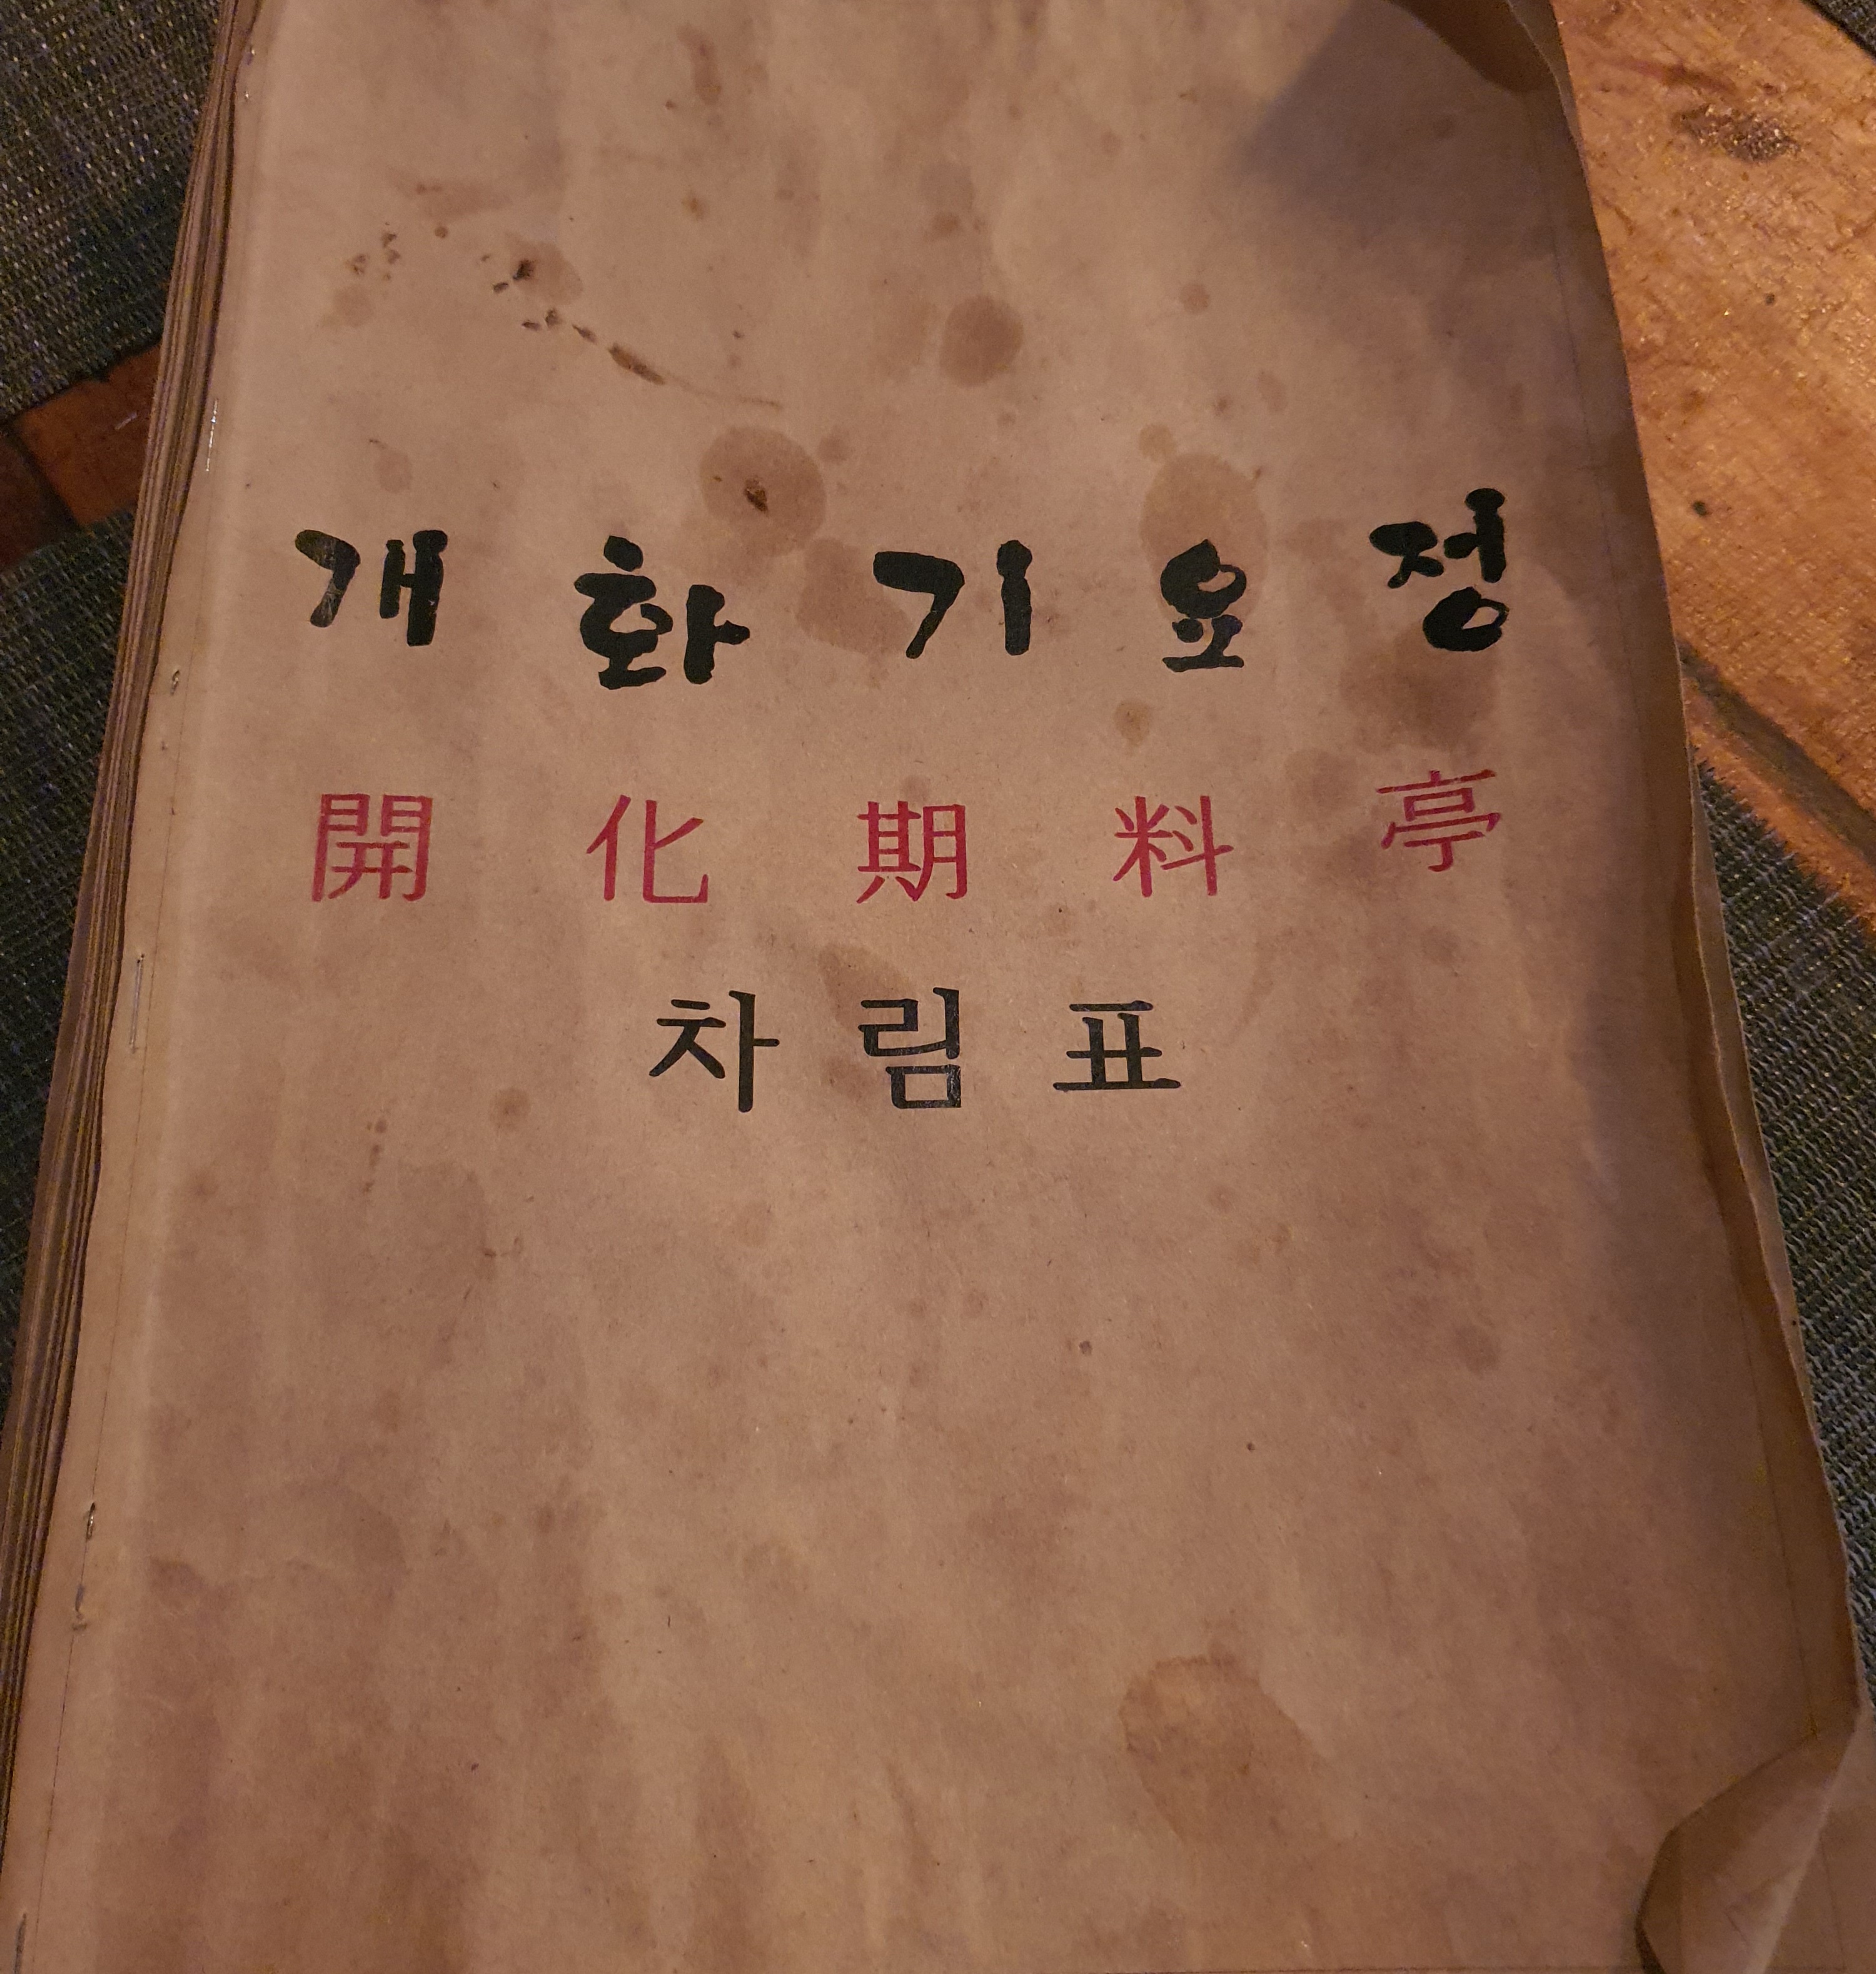 개화기요정
開化期料亭
차림표